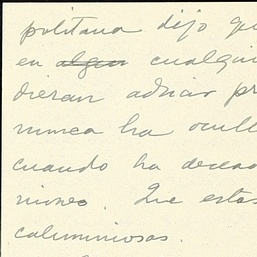 politana dijo qu
en algun cualqui
dieran aducir pr
nunca ha ocul
cuando ha desea
niones. Que estas
calumniosas.